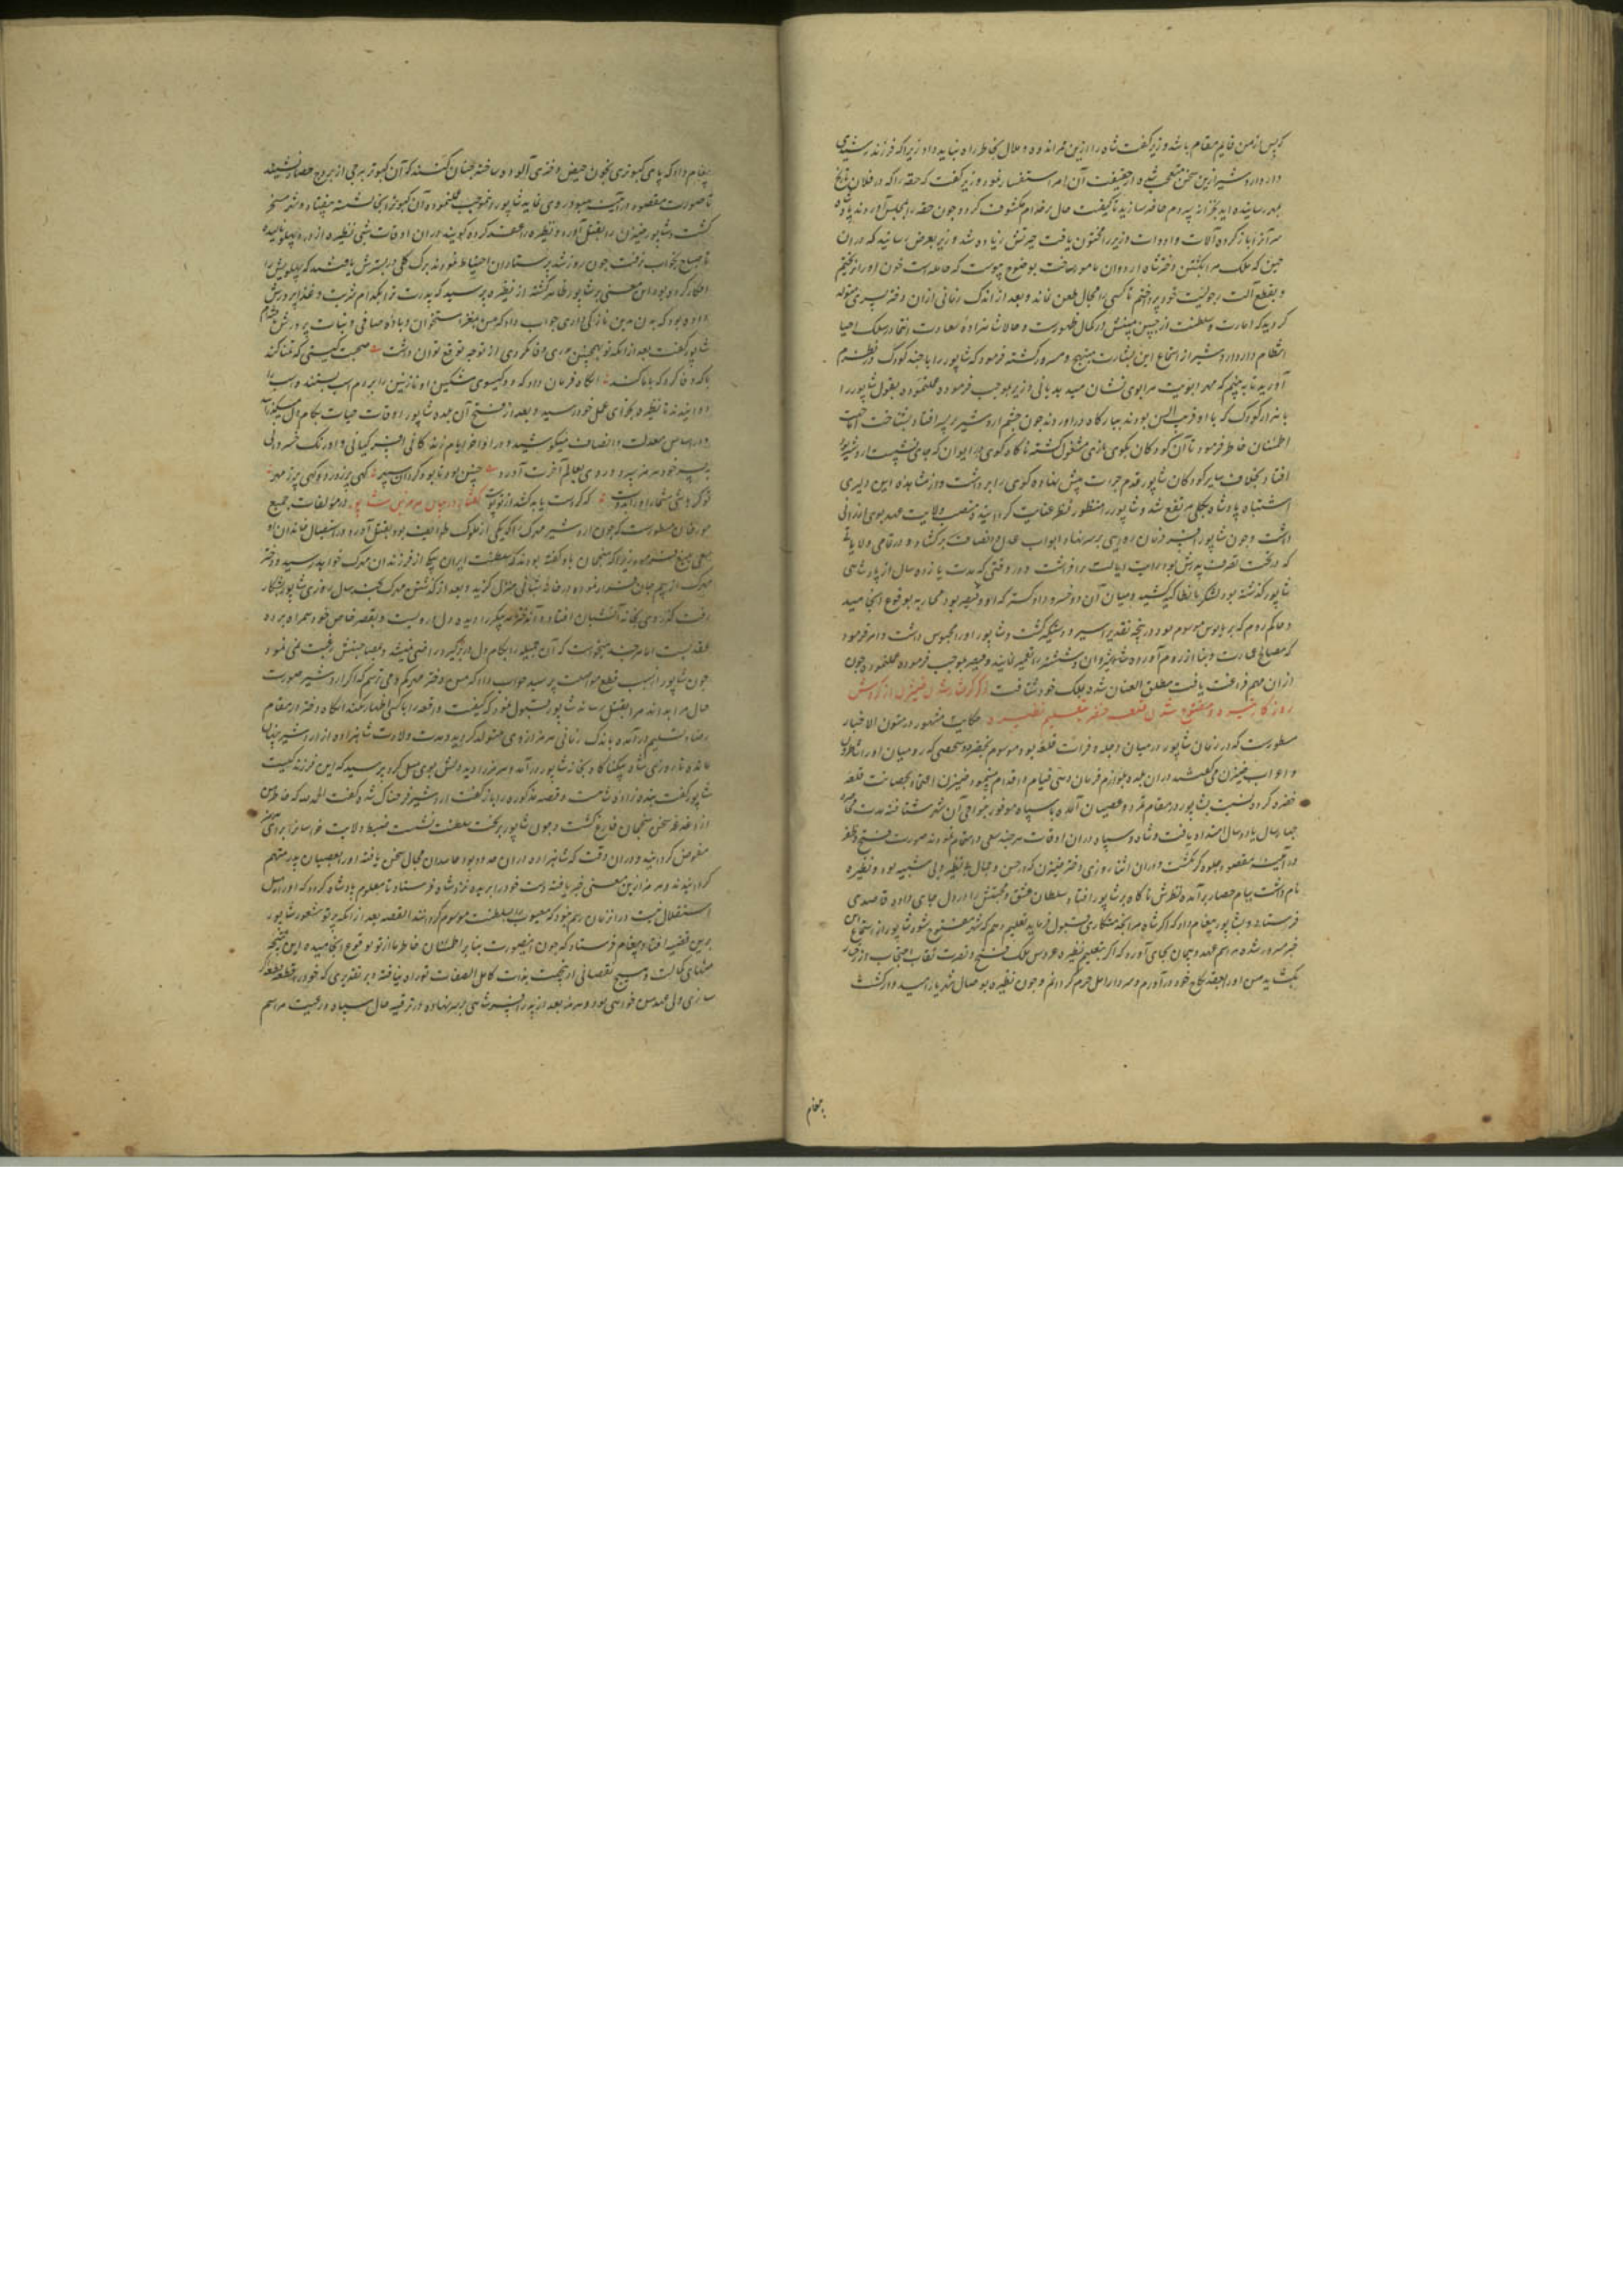 که پس از من قایم مقام باشد وزیر گفت شاه را ازین ممر اندوه و ملال بخاطر راه نباید داد زیرا که فرزند رشیدی
دارد اردشیر ازین سخن متعجب شده از حقیقت آن امر استفسار نمود وزیر گفت که حقه را که در فلان تاریخ
بمهر رسانیده اید بخزانه سپردم حاضر سازید تا کیفیت حال بر خدام مکشوف گردد چون حقه را بمجلس آوردند پادشاه
سر آنرا باز کرده آلات و ادوات وزیر را مختون یافت حیرتش زیاده شد وزیر بعرض رسانید که در آن
حین که ملک مرا بکشتن دختر شاه اردوان مامور ساخت بوضوح پیوست که حامله است خون او را نریختم
و بقطع آلت رجولیت خود پرداختم تا کسی را مجال طعن نماند و بعد از اندک زمانی ازان دختر پسری متولد
گردید که امارت سلطنت از جبین مبینش در کمال ظهورست و حالا شاهزاده سعادت انتما در سلک احیا
انتظام دارد اردشیر از استماع این بشارت مبتهج و مسرور گشته فرمود که شاپور را با چند کودک در نظرم
آورید تا ببینم که مهر ابوت مرا بوی نشان میدهد یا نی وزیر بموجب فرموده عملنموده بقول شاپور را
با هزار کودک که با او قریب السن بودند ببارگاه در آوردند چون چشم اردشیر بر پسر افتاد بشناخت اما جهت
اطمینان خاطر فرمود تا آن کودکان بگوی بازی مشغول گشته ناگاه گوی در ایوان که جای نشست اردشیر بود
افتاد بخلاف سایر کودکان شاپور قدم جرات پیش نهاده گوی را برداشت و از مشاهده این دلیری
اشتباه پادشاه بکلی مرتفع شد و شاپور را منظور نظر عنایت گردانید و منصب ولایت عهد بوی ارزانی
داشت و چون شاپور افسر فرمان روایی بر سر نهاد ابواب عدل و انصاف بر گشاد و در تمامی ولایاتی
که در تحت تصرف پدرش بود رایت ایالت برافراشت و در وقتی که مدت یازده سال از پادشاهی
شاپور گذشته بود لشکر بانطاکیه کشید و میان آن دو خسرو دادگستر که او و قیصر بود محاربه بوقوع انجامید
و حاکم روم که بریانوس موسوم بود در پنجه تقدیر اسیر و دستگیر گشت و شاپور او را محبوس داشت و امر فرمود
که مصالح عمارت و بنا از روم آورده شادروان شوشتر را تعمیر نمایند و قیصر بموجب فرموده عملنموده چون
ازان مهم فراغت یافت مطلق العنان شده بملک خود شتافت ذکر گرفتار شدن ضیزن از گردش
روزگار خیره و مفتوح شدن قلعه حضر بتعلیم نضیره حکایت مشهور در متون الاخبار
مسطورست که در زمان شاپور در میان دجله و فرات قلعه بود موسوم بحضر و شخصی که رومیان او را ساطرون
و اعراب ضیزن میگفتند در ان بلده بلوازم فرمان دهی قیام و اقدام مینمود ضیزن اعتماد بحصانت قلعه
حضر کرده نسبت بشاپور در مقام تمرد و عصیان آمده با سپاه موفور بنواحی آن شهر شتافته مدت محاصره
چهار سال یا دو سال امتداد یافت و شاه و سپاه در ان اوقات هر چند سعی و اهتمام نمودند صورت فتح و ظفر
در آیینه مقصود جلوه گر نگشت و در ان اثنا روزی دختر ضیزن که در حسن و جمال بی نظیر ولی شبیه بود و نضیره
نام داشت ببام حصار برآمده نظرش ناگاه بر شاپور افتاد سلطان عشق و محبتش را در دل جای داده قاصدی
فرستاده و بشاپور پیغام داد که اگر شاه مرا بخدمتکاری قبول فرماید تعلیم دهم که شهر مفتوح بشود شاپور از استماع این
خبر مسرور شده مراسم عهد و پیمان بجای آورد که اگر بتعلیم نضیره عروس ملک فتح و نصرت نقاب احتجاب از رخسار
بگشاید من او را بعقد نکاح خود در آورم و سردار اهل حرم گردانم و چون نضیره بوصال شهریار امیدوار گشت
پیغام
پیغام داد که پای کبوتری بخون حیض دختری آلوده ساخته چنان کنند که آن کبوتر ببرجی از بروج حصار نشیند
تا صورت مقصود در آیینه بهبود روی نماید شاپور بموجب عملنموده آن کبوتر بر بجا نشسته بیفتاد و شهر مسخر
گشت و شاپور ضیزن را بقتل آورد و نضیره را عقد کرده گویند در ان اوقات شبی نضیره از درد پهلو نالیده
تا صباح بخواب نرفت چون روز شد پرستاران احتیاط نمودند برک گلی در بسترش یافتند که پهلویش را
افکار کرده بود این معنی بر شاپور ظاهر گشته از نضیره پرسید که پدرت ترا بکدام شربت و غذا پرورش
داده بود که بدن بدین نازکی داری جواب داد که من بمغز استخوان و باده صافی و نبات پرورش یافته ام
شاپور گفت بعد از انکه تو بچنین پدری وفا نکردی از تو چه توقع توان داشت صحبت گیتی که تمنا کند
با که وفا کرد که با ما کند آنگاه فرمان داد که دو گیسوی مشکین او نازنین را بر دم اسب بستند و اسب را
دوانیدند تا نضیره بجزای عمل خود رسید و بعد از فتح آن بلده شاپور اوقات حیات بکام دل میگذرانید
و در اساس معدلت و انصاف میکوشید و در اواخر ایام زندگانی افسر کیانی و اورنگ خسروی
به پسر خود هرمز سپرد و روی بعالم آخرت آورد چنین بود تا بود گردان سپهر گهی پر ز درد و گهی پر ز مهر
گفتار در بیان هرمز بن شاپور در مؤلفات جمیع
مورخان مسطورست که چون اردشیر مهرک را که یکی از ملوک طوایف بود بقتل آورد و در استیصال خاندان او
سعی بلیغ فرمود زیرا که منجمان باو گفته بودند که سلطنت ایران بیکی از فرزندان مهرک خواهد رسید و دختر
مهرک از بیم جان فرار نموده در خانه شبانی منزل گزید و بعد از گذشتن مهرک بچند سال روزی شاپور بشکار
رفت گذرش بخانه آنشبان افتاده آن دختر پیکر را دیده دل از دست و بقصر خاص خود همراه برده
عقد بست اما هر چند میخواست که آن جمیله را بکام دل در بر گیرد راضی نمیشد و بمصاحبتش رغبت نمی نمود
چون شاپور از سبب قطع مواصلت پرسید جواب داد که من دختر مهرکم و می ترسم که اگر اردشیر صورت
حال مرا بداند مرا بقتل رساند شاپور قبول نمود که کیفیت واقعه را با کسی اظهار نکند آنگاه دختر در مقام
رضا و تسلیم در آمده باندک زمانی هرمز ازوی متولد گردید و مدت ولادت شاهزاده از اردشیر پنهان
مانده تا روزی شاه بیکناگاه بخانه شاپور در آمد و هرمز را دیده دلش بسوی میل کرد پرسید که این فرزند کیست
شاپور گفت بنده زاده شماست و قصه مذکوره را باز گفت اردشیر فرحناک شد و گفت الحمد لله که خاطر من
از دغدغه سخن منجمان فارغ گشت و چون شاپور بر تخت سلطنت نشست ضبط ولایت خراسان را برای هرمز
مفوض گردانید و در ان وقت که شاهزاده در ان حدود بود حاسدان مجال سخن یافته او را بعصیان پدر متهم
گردانیدند و هرمز ازین معنی خبر یافته دست خود را بریده نزد شاه فرستاد تا معلوم پادشاه گردد که او را میل
استقلال نیست و در ان زمان رسم نبود که معیوب را بسلطنت موسوم گردانند القصه بعد از انکه پرتو شعور شاپور
برین قضیه افتاد پیغام فرستاد که چون این صورت بنا بر اطمینان خاطر ما از تو بوقوع انجامیده این نتیجه
منتهای کمالت و هیچ نقصانی ازین جهت بذات کامل الصفات تو راه نیافته و بر تقدیری که خود را قطعه قطعه
سازی ولی عهد من خواهی بود و هرمز بعد از پدر افسر شاهی بر سر نهاده در ترفیه حال سپاه و رعیت مراسم